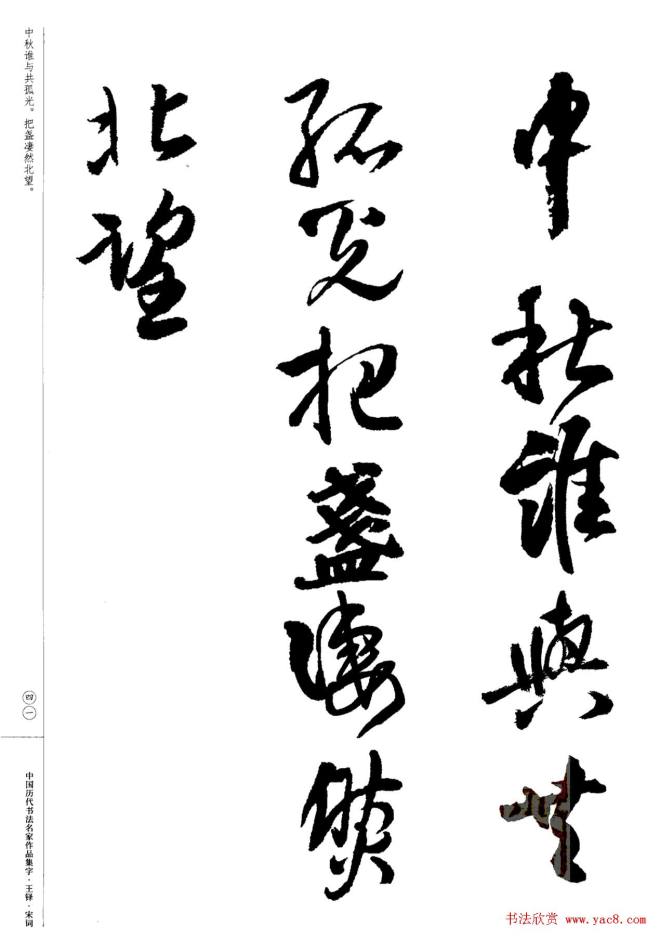 中秋誰與共
孤光把盞淒然
北望
中秋谁与共孤光。把盏凄然北望。
四一
中国历代书法名家作品集字·王铎·宋词
书法欣赏 www.yac8.com